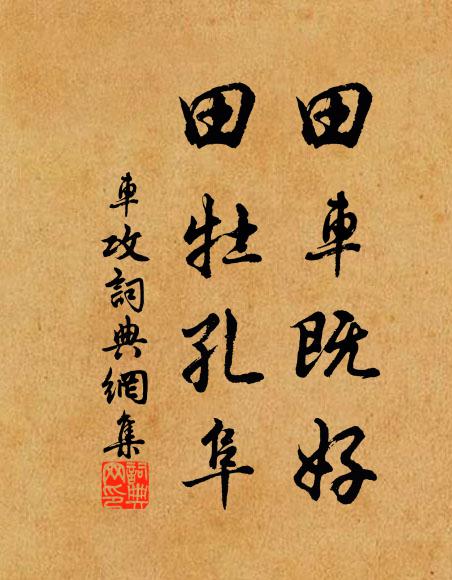 田車既好
田牡孔阜
車攻詞典網集
詞典網印